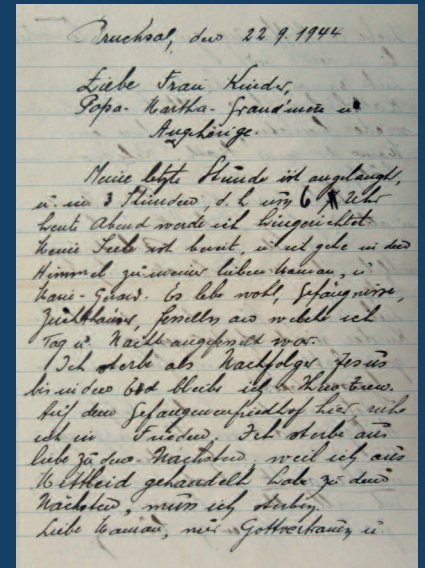 Bruchsal, den 22.9.1944
Liebe Frau Kinder,
Papa-Martha-Grand'mère u.
Angehörige.
Meine letzte Stunde ist angelangt,
u. in 3 Stunden, d.h. um 6 Uhr
heute Abend werde ich hingerichtet.
Meine Seele ist bereit, u. ich gehe in den
Himmel zu meiner lieben Maman, u.
Marie-Gérard. Es lebe wohl, Gefängnisse,
Zuchthäuser, Fesseln an welche ich
Tag u. Nacht angefesselt war.
Ich sterbe als Nachfolger Jesus
bis in den Tod bleibe ich Ihm treu.
Auf dem Gefangenenfriedhof hier ruhe
ich in Frieden. Ich sterbe aus
liebe zu den Nächsten, weil ich aus
Mitleid gehandelt habe zu dem
Nächsten, muss ich sterben.
Liebe Maman, nur Gottvertrauen u.